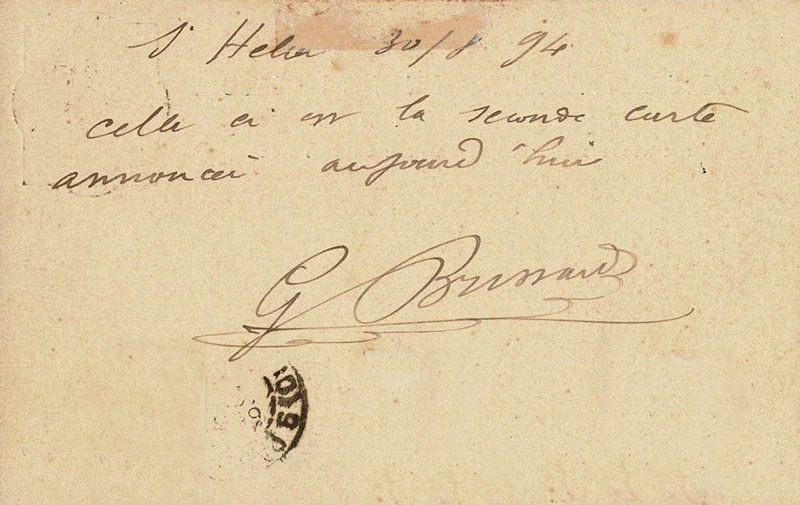 St Helier 30/8 94
celle ci est la seconde carte
annoncée aujourd'hui
G